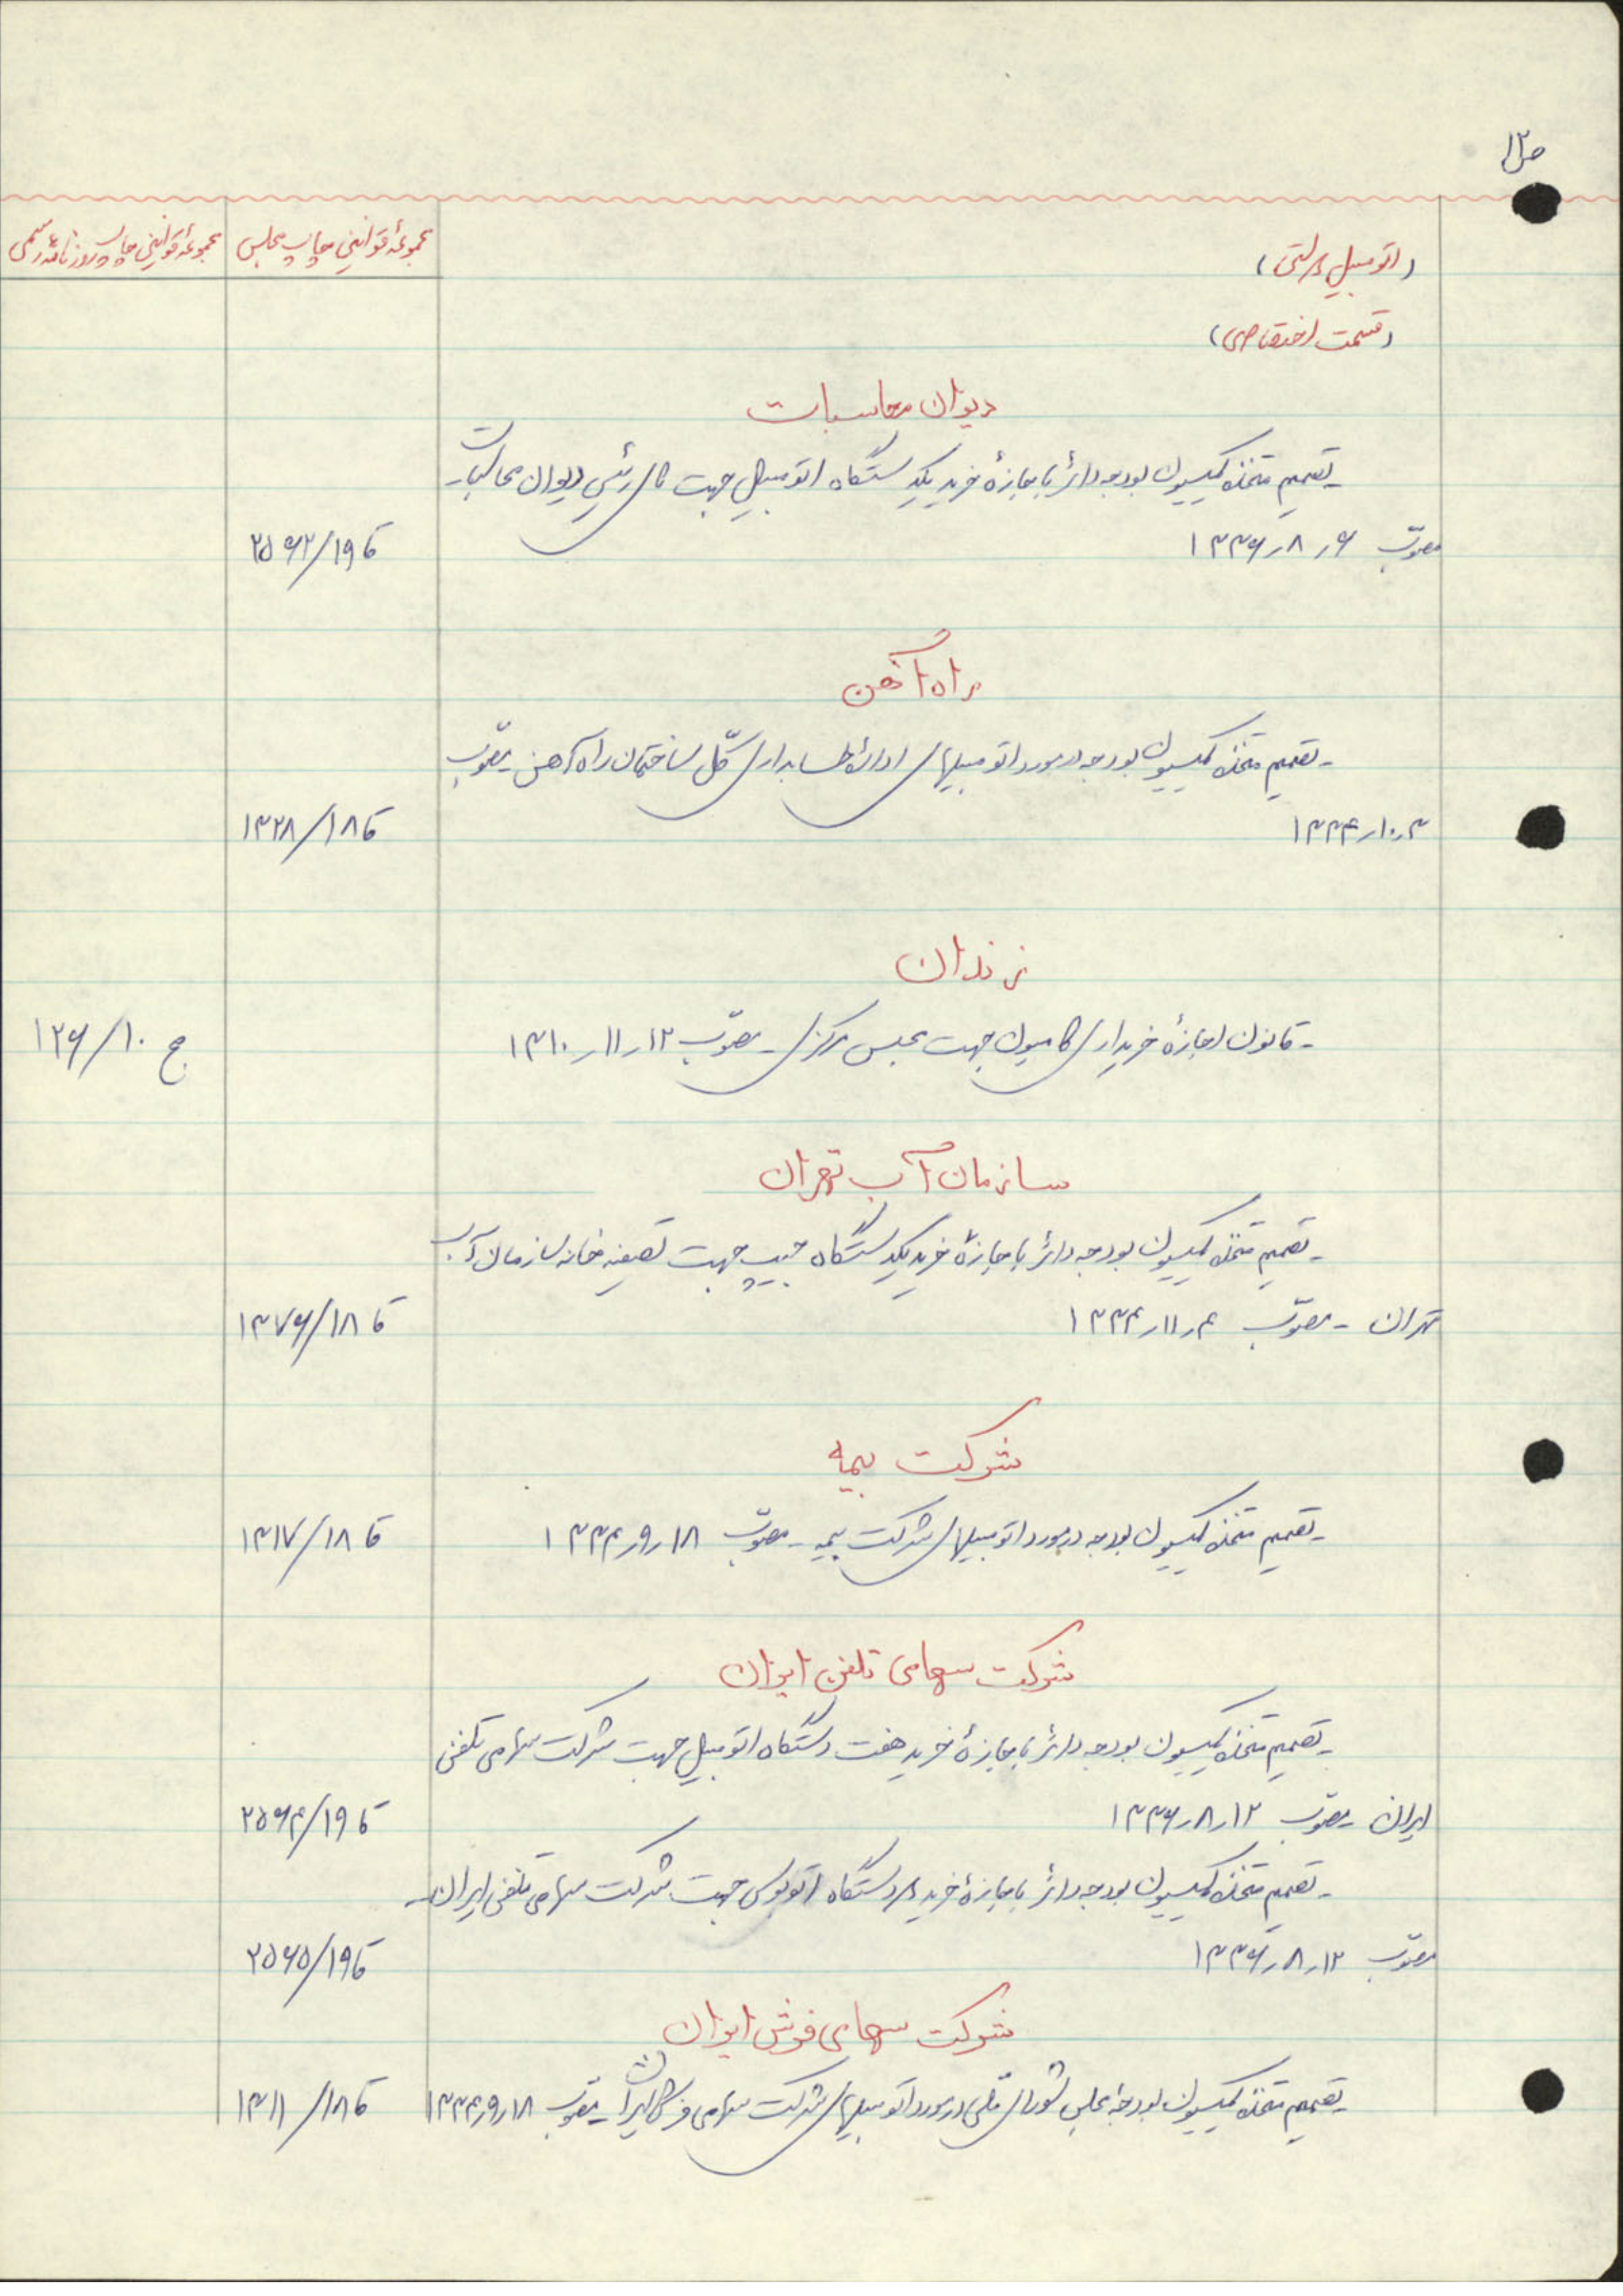 ص ۱۲
(اتومبیل دولتی)
مجموعهٔ قوانین چاپ مجلس
مجموعهٔ قوانین چاپ روزنامهٔ رسمی
(قسمت اختصاصی)
دیوان محاسبات
ـ تصمیم متخذه کمیسیون بودجه دائر باجازهٔ خرید یکدستگاه اتومبیل جهت رئیس دیوان محاسبات ـ
مصوّب ۶ر۸ر۱۳۳۶
ق ۱۹/۲۵۶۲
راه آهن
ـ تصمیم متخذه کمیسیون بودجه در مورد اتومبیلهای ادارهٔ حسابداری کلّ ساختمان راه آهن ـ مصوّب
۳ر۱۰ر۱۳۳۴
ق ۱۸/۱۳۲۸
زندان
ـ قانون اجازهٔ خریداری کامیون جهت محبس مرکزی ـ مصوّب ۱۲ر۱۱ر۱۳۱۰
ج ۱۰/۱۲۶
سازمان آب تهران
ـ تصمیم متخذه کمیسیون بودجه دائر باجازهٔ خرید یکدستگاه جیپ جهت تصفیه خانه سازمان آب
تهران ـ مصوّب ۴ر۱۱ر۱۳۳۴
ق ۱۸/۱۳۷۶
شرکت بیمه
ـ تصمیم متخذه کمیسیون بودجه در مورد اتومبیلهای شرکت بیمه ـ مصوّب ۱۸ر۹ر۱۳۳۴
ق ۱۸/۱۳۱۷
شرکت سهامی تلفن ایران
ـ تصمیم متخذه کمیسیون بودجه دائر باجازهٔ خرید هفت دستگاه اتومبیل جهت شرکت سهامی تلفن
ایران ـ مصوّب ۱۲ر۸ر۱۳۳۶
ق ۱۹/۲۵۶۴
ـ تصمیم متخذه کمیسیون بودجه دائر باجازهٔ خرید دو دستگاه اتوبوس جهت شرکت سهامی تلفن ایران ـ
مصوّب ۱۲ر۸ر۱۳۳۶
ق ۱۹/۲۵۶۵
شرکت سهامی فرش ایران
ـ تصمیم متخذه کمیسیون بودجهٔ مجلس شورای ملّی در مورد اتومبیلهای شرکت سهامی فرش ایران ـ مصوّب ۱۸ر۹ر۱۳۳۴
ق ۱۸/۱۳۱۱